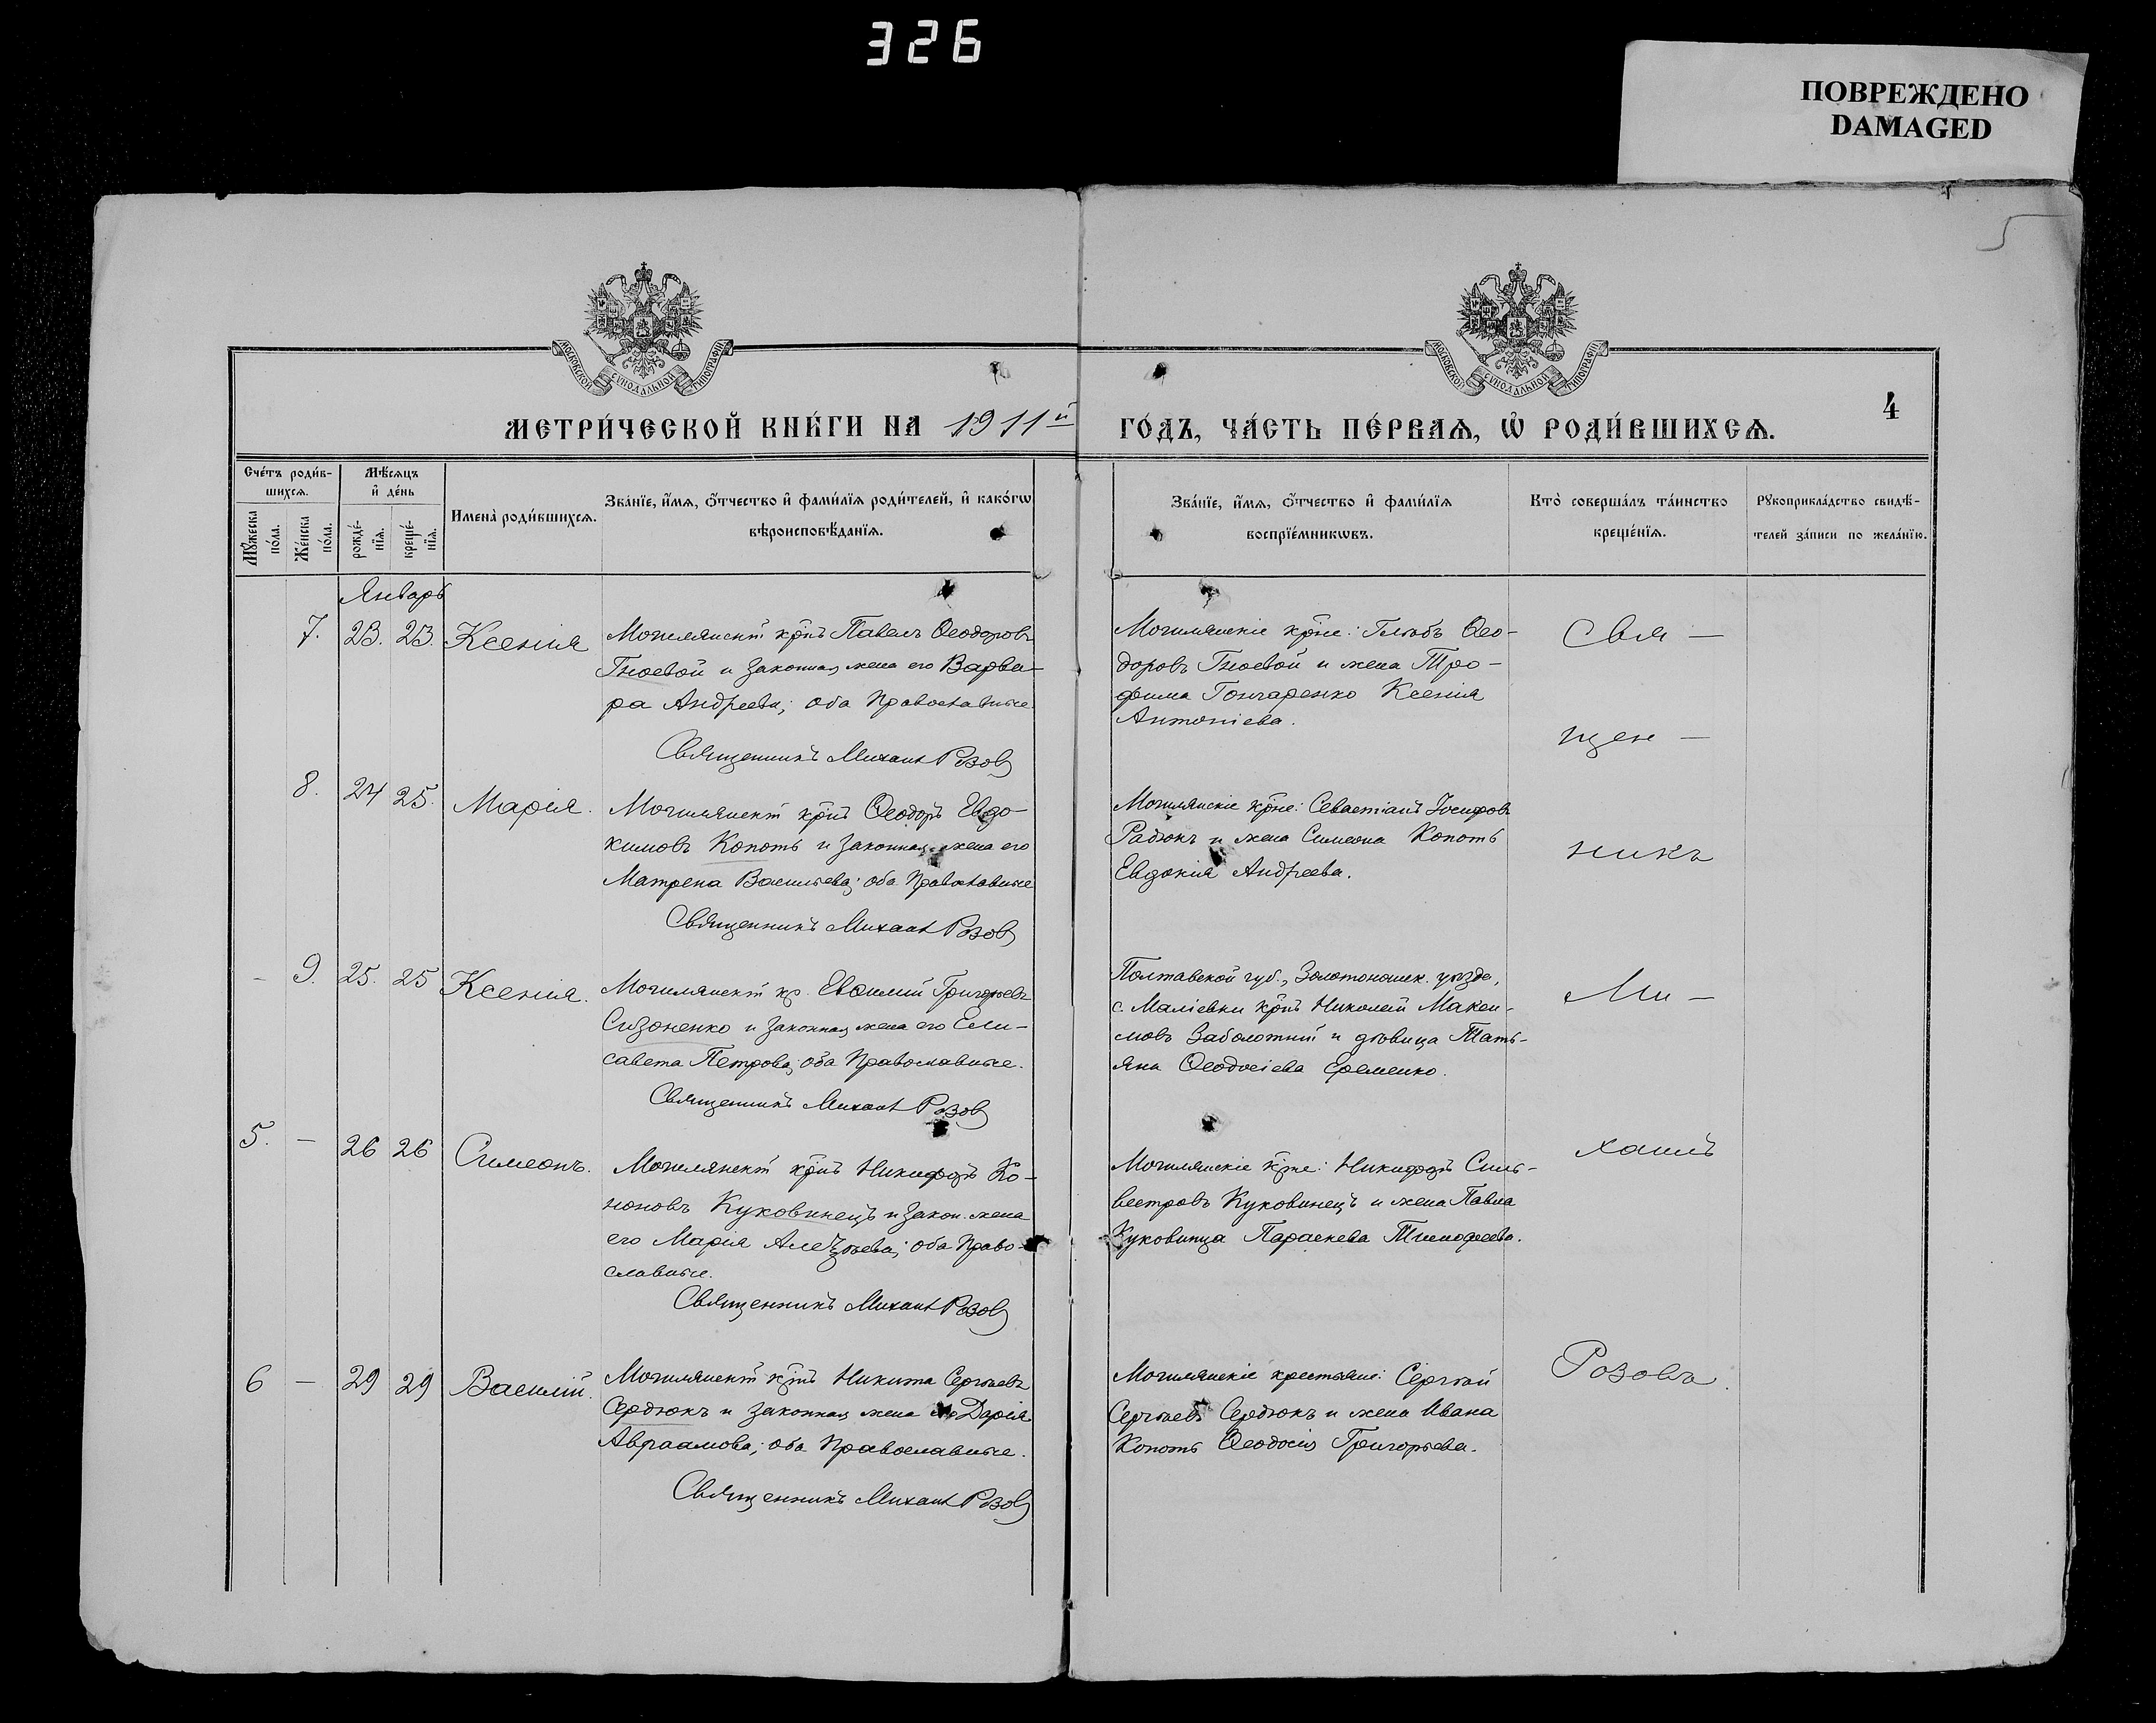 326
ПОВРЕЖДЕНО
DAMAGED
5
МОСКОВСКОЙ СѴНОДАЛЬНОЙ ТИПОГРАФІИ
МОСКОВСКОЙ СѴНОДАЛЬНОЙ ТИПОГРАФІИ
4
МЕТРИ́ЧЕСКОЙ КНИ́ГИ НА 1911й
ГО́ДЪ, ЧА́СТЬ ПЕ́РВАѦ, Ѡ҆ РОДИ́ВШИХСѦ.
Сче́тъ роди́в-
шихсѧ.
Мѣ́сѧцъ
и҆ де́нь
Мꙋ́жеска
по́ла.
Же́нска
по́ла.
рожде́-
нїѧ.
креще́-
нїѧ.
Имена̀ роди́вшихсѧ.
Зва́нїе, и҆́мѧ, ѻ҆́тчество и҆ фами́лїѧ роди́телей, и҆ како́гѡ
вѣроисповѣ́данїѧ.
Зва́нїе, и҆́мѧ, ѻ҆́тчество и҆ фами́лїѧ
воспрїе́мникѡвъ.
Кто̀ соверша́лъ та́инство
креще́нїѧ.
Рꙋкоприкла́дство свидѣ́-
телей за́писи по жела́нїю.
Январь
7. 23. 23. Ксенія
Могилянскій кр̃нъ Павелъ Ѳеодоровъ
Гноевой и законная жена его Варва-
ра Андреева; оба Православные
Священникъ Михаилъ Розовъ
Могилянскіе кр̃не: Глѣбъ Ѳео-
доровъ Гноевой и жена Тро-
фима Гончаренко Ксенія
Антоніева.
Свя —
щен —
8. 24 25. Марія.
Могилянскій кр̃нъ Ѳеодоръ Евдо-
кимовъ Копоть и законная жена его
Матрена Васильева; оба Православные
Священникъ Михаилъ Розовъ
Могилянскіе кр̃не: Севастіанъ Іосифовъ
Радюкъ и жена Симеона Копоть
Евдокія Андреева.
никъ
— 9. 25. 25 Ксенія.
Могилянскій кр. Евѳимій Григорьевъ
Сизоненко и законная жена его Ели-
савета Петрова; оба Православные.
Священникъ Михаилъ Розовъ
Полтавской губ., Золотоношск. уѣзда,
с. Маліевки кр̃нъ Николай Макси-
мовъ Заболотній и дѣвица Тать-
яна Ѳеодосіева Еременко.
Ми —
5. — 26 26 Симеонъ.
Могилянскій кр̃нъ Никифоръ Ко-
ноновъ Куковинецъ и закон. жена
его Марія оба Право-
славные.
Священникъ Михаилъ Розовъ
Могилянскіе кр̃не: Никифоръ Силь-
вестровъ Куковинецъ и жена Павла
Куковинца Параскева Тимофеева.
хаилъ
6 — 29 29 Василій.
Могилянскій кр̃нъ Никита Сергѣевъ
Сердюкъ и законная жена его Дарія
Авраамова; оба Православные.
Священникъ Михаилъ Розовъ
Могилянскіе крестьяне: Сергѣй
Сергѣевъ Сердюкъ и жена Ивана
Копоть Ѳеодосія Григорьева.
Розовъ.